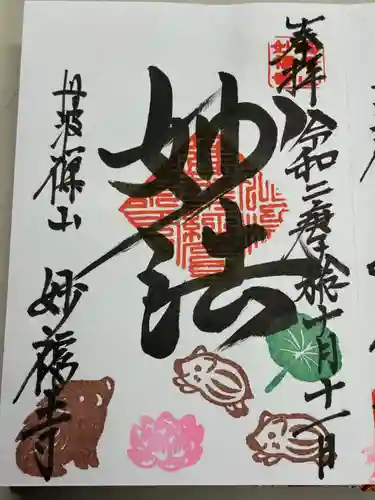 奉拝
令和二庚子歳十月十一日
妙法
丹波篠山
妙福寺